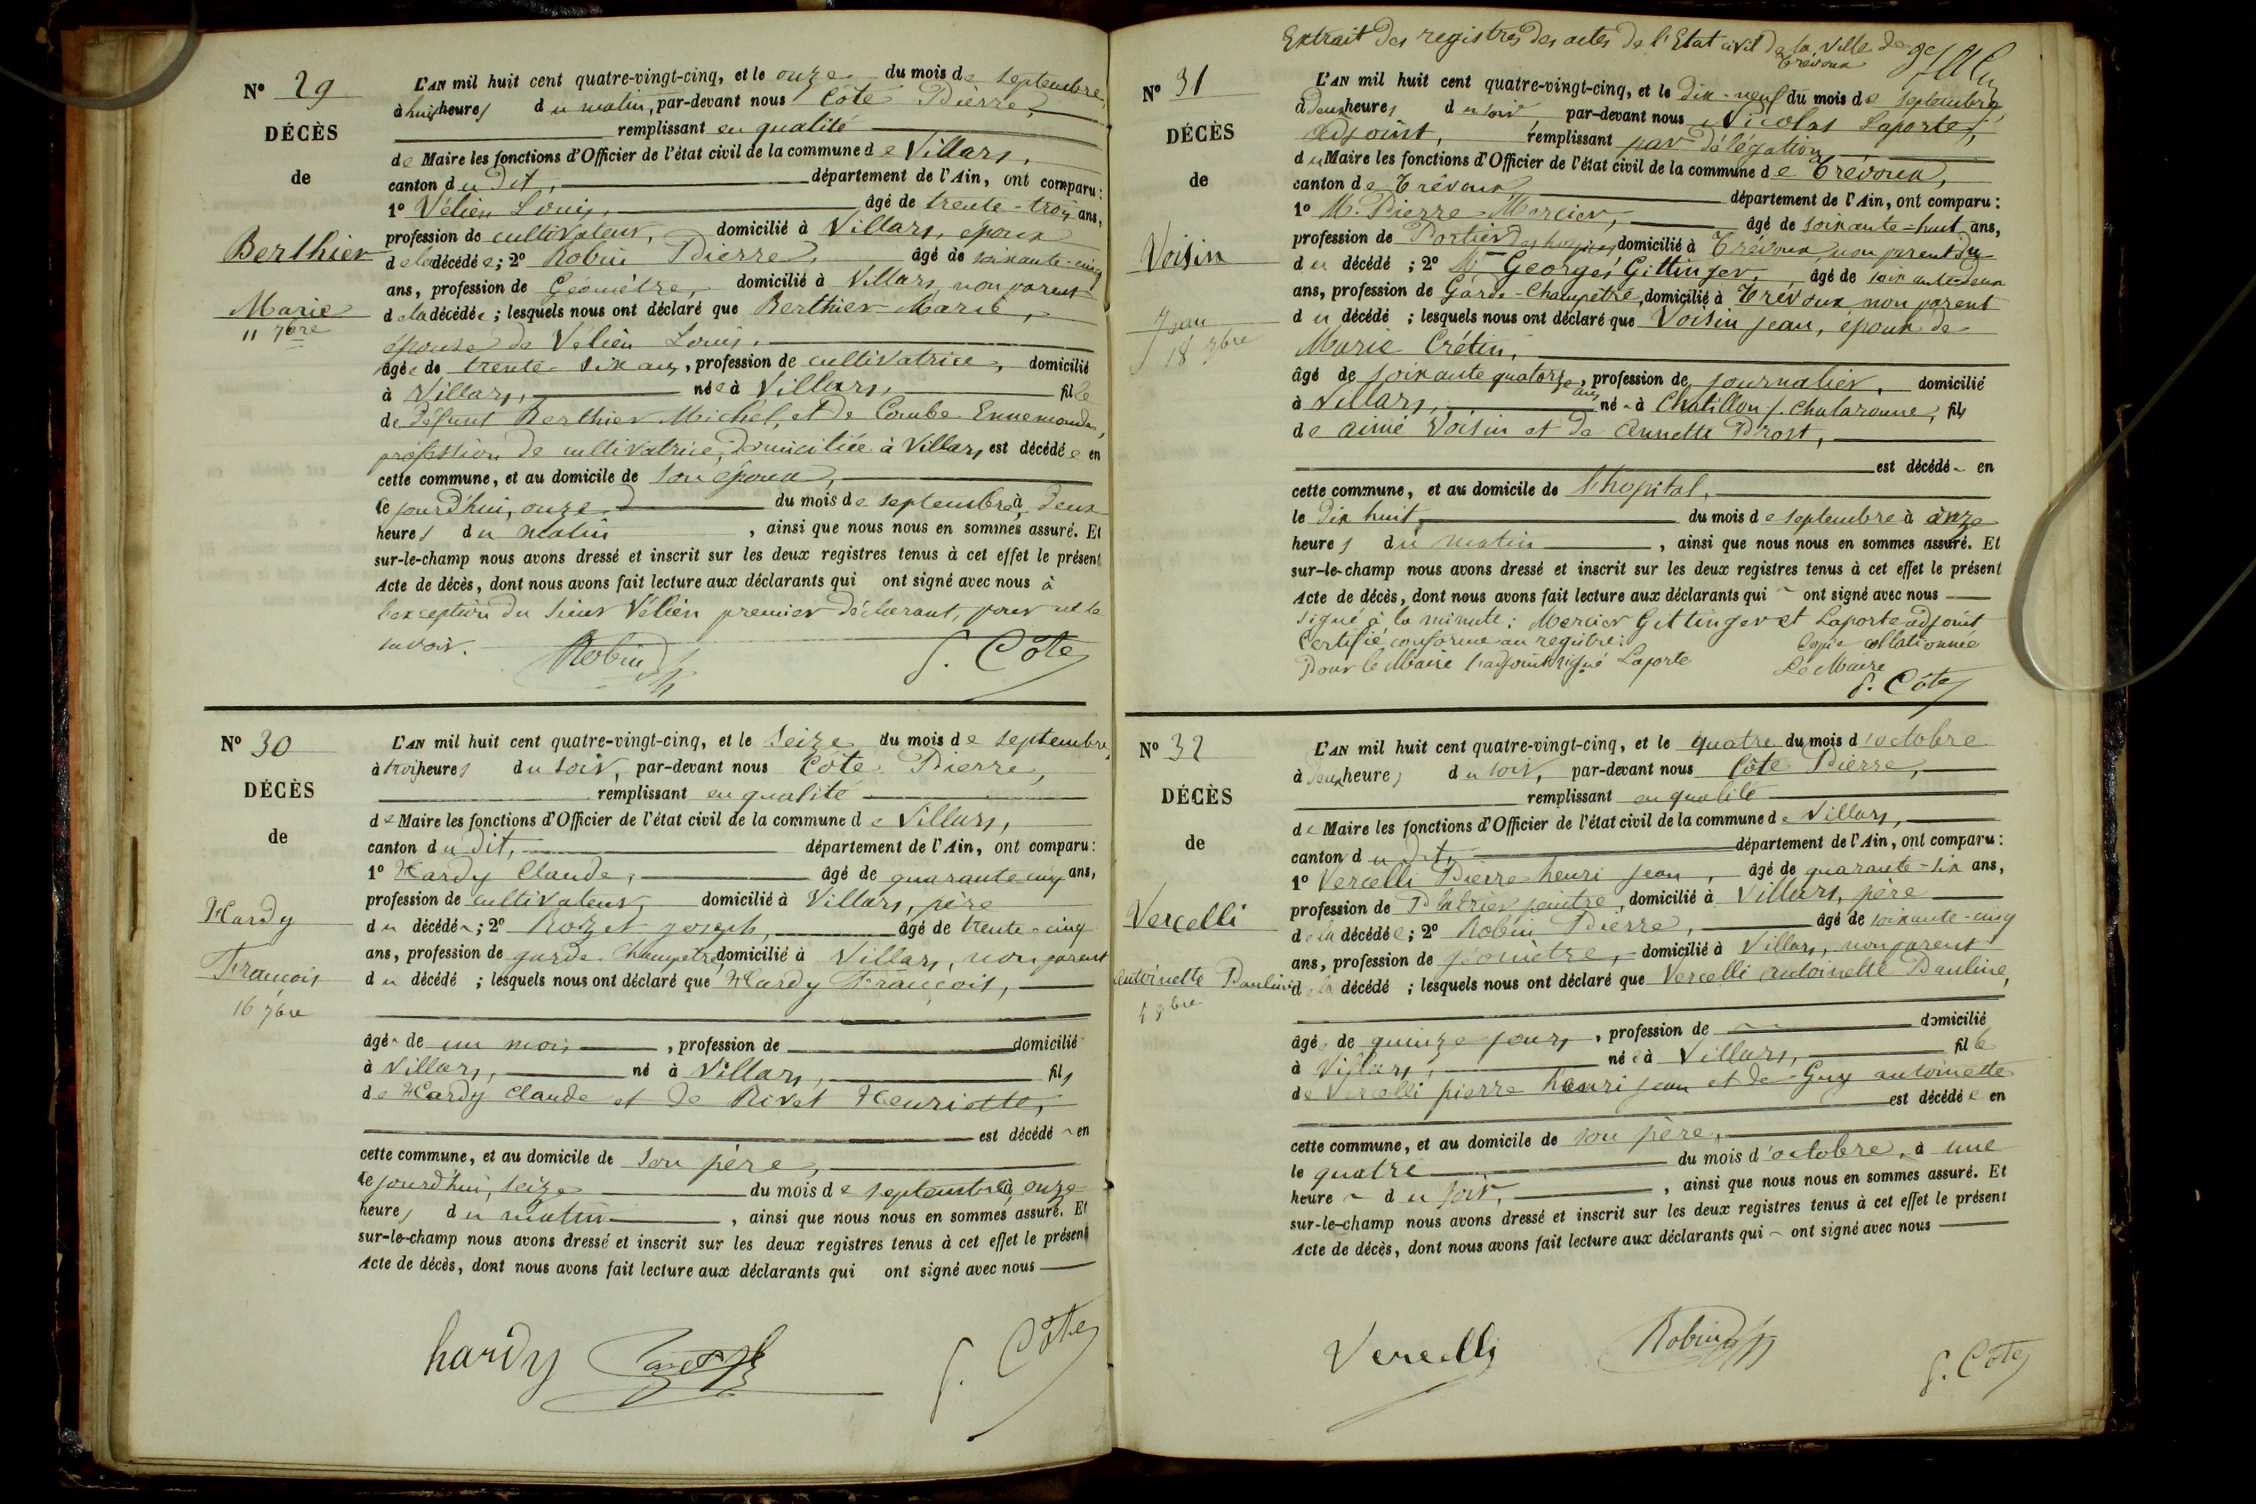 Nº 29
DÉCÈS
de
Berthier
Marie
11 7bre
L'AN mil huit cent quatre-vingt-cinq, et le onze du mois de septembre,
à huit heures du matin, par-devant nous Côte Pierre,
remplissant en qualité
de Maire les fonctions d'Officier de l'état civil de la commune de Villars,
canton du dit, département de l'Ain, ont comparu:
1º Vélien Louis, âgé de trente-trois ans,
profession de cultivateur, domicilié à Villars, époux
de la décédée; 2º Robin Pierre, âgé de soixante-cinq
ans, profession de Géomètre, domicilié à Villars, non parent
de la décédée; lesquels nous ont déclaré que Berthier Marie,
épouse de Vélien Louis,
âgée de trente-six ans, profession de cultivatrice, domicilié
à Villars, née à Villars, fille
de défunt Berthier Michel, et de Combe Ennemonde,
profession de cultivatrice, domiciliée à Villars, est décédée en
cette commune, et au domicile de son époux,
le jourd'hui, onze du mois de septembre, à deux
heures du matin, ainsi que nous nous en sommes assuré. Et
sur-le-champ nous avons dressé et inscrit sur les deux registres tenus à cet effet le présent
Acte de décès, dont nous avons fait lecture aux déclarants qui ont signé avec nous à
l'exception du sieur Vélien premier déclarant, pour ne le
savoir.
Robin P. Côte
Nº 30
DÉCÈS
de
Hardy
François
16 7bre
L'AN mil huit cent quatre-vingt-cinq, et le seize du mois de septembre,
à trois heures du soir, par-devant nous Côte Pierre,
remplissant en qualité
de Maire les fonctions d'Officier de l'état civil de la commune de Villars,
canton du dit, département de l'Ain, ont comparu:
1º Hardy Claude, âgé de quarante cinq ans,
profession de cultivateur, domicilié à Villars, père
du décédé; 2º Rozet joseph, âgé de trente-cinq
ans, profession de garde-Champêtre, domicilié à Villars, non parent
du décédé; lesquels nous ont déclaré que Hardy François,
âgé de un mois, profession de domicilié
à Villars, né à Villars, fils
de Hardy Claude et de Rivet Henriette,
est décédé en
cette commune, et au domicile de son père,
le jourd'hui, seize du mois de septembre à onze
heures du matin, ainsi que nous nous en sommes assuré. Et
sur-le-champ nous avons dressé et inscrit sur les deux registres tenus à cet effet le présent
Acte de décès, dont nous avons fait lecture aux déclarants qui ont signé avec nous
hardy P. Côte
Extrait des registres des actes de l'Etat civil de la Ville de
Trévoux
Nº 31
DÉCÈS
de
Voisin
Jean
18 7bre
L'AN mil huit cent quatre-vingt-cinq, et le dix-neuf du mois de septembre,
à deux heures du soir, par-devant nous Nicolas Laporte,
adjoint, remplissant par délégation
du Maire les fonctions d'Officier de l'état civil de la commune de Trévoux,
canton de Trévoux département de l'Ain, ont comparu:
1º M. Pierre Mercier, âgé de soixante-huit ans,
profession de Portier des hospices, domicilié à Trévoux, non parent du
du décédé; 2º Mr Georges Gittinger, âgé de soixante-deux
ans, profession de Garde-Champêtre, domicilié à Trévoux non parent
du décédé; lesquels nous ont déclaré que Voisin jean, époux de
Marie Crétin,
âgé de soixante quatorze ans, profession de journalier, domicilié
à Villars, né à Chatillon s. Chalaronne, fils
de aimé Voisin et de Annette Prost,
est décédé en
cette commune, et au domicile de l'hopital,
le dix huit du mois de septembre à onze
heures du matin, ainsi que nous nous en sommes assuré. Et
sur-le-champ nous avons dressé et inscrit sur les deux registres tenus à cet effet le présent
Acte de décès, dont nous avons fait lecture aux déclarants qui ont signé avec nous
signé à la minute: Mercier Gittinger et Laporte adjoint
Certifié conforme au registre: Copie collationnée
Pour le Maire l'adjoint signé Laporte Le Maire
P. Côte
Nº 32
DÉCÈS
de
Vercelli
Antoinette Pauline
L'AN mil huit cent quatre-vingt-cinq, et le quatre du mois d'octobre
à deux heures du soir, par-devant nous Côte Pierre,
remplissant en qualité
de Maire les fonctions d'Officier de l'état civil de la commune de Villars,
canton du dit, département de l'Ain, ont comparu:
1º Vercelli Pierre henri jean, âgé de quarante-six ans,
profession de Platrier peintre, domicilié à Villars, père
de la décédée; 2º Robin Pierre, âgé de soixante-cinq
ans, profession de géomètre, domicilié à Villars, non parent
de la décédé; lesquels nous ont déclaré que Vercelli antoinette Pauline,
âgée de quinze jours, profession de domicilié
à Villars, née à Villars, fille
de Vercelli pierre henri jean et de Guy antoinette
est décédée en
cette commune, et au domicile de son père,
le quatre du mois d'octobre, à une
heure du soir, ainsi que nous nous en sommes assuré. Et
sur-le-champ nous avons dressé et inscrit sur les deux registres tenus à cet effet le présent
Acte de décès, dont nous avons fait lecture aux déclarants qui ont signé avec nous
Vercelli Robin P. Côte